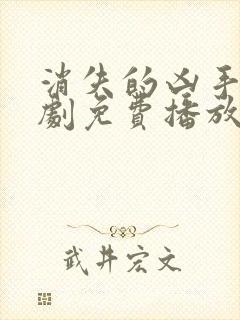 消失的凶手
劇免費播放
武井宏文